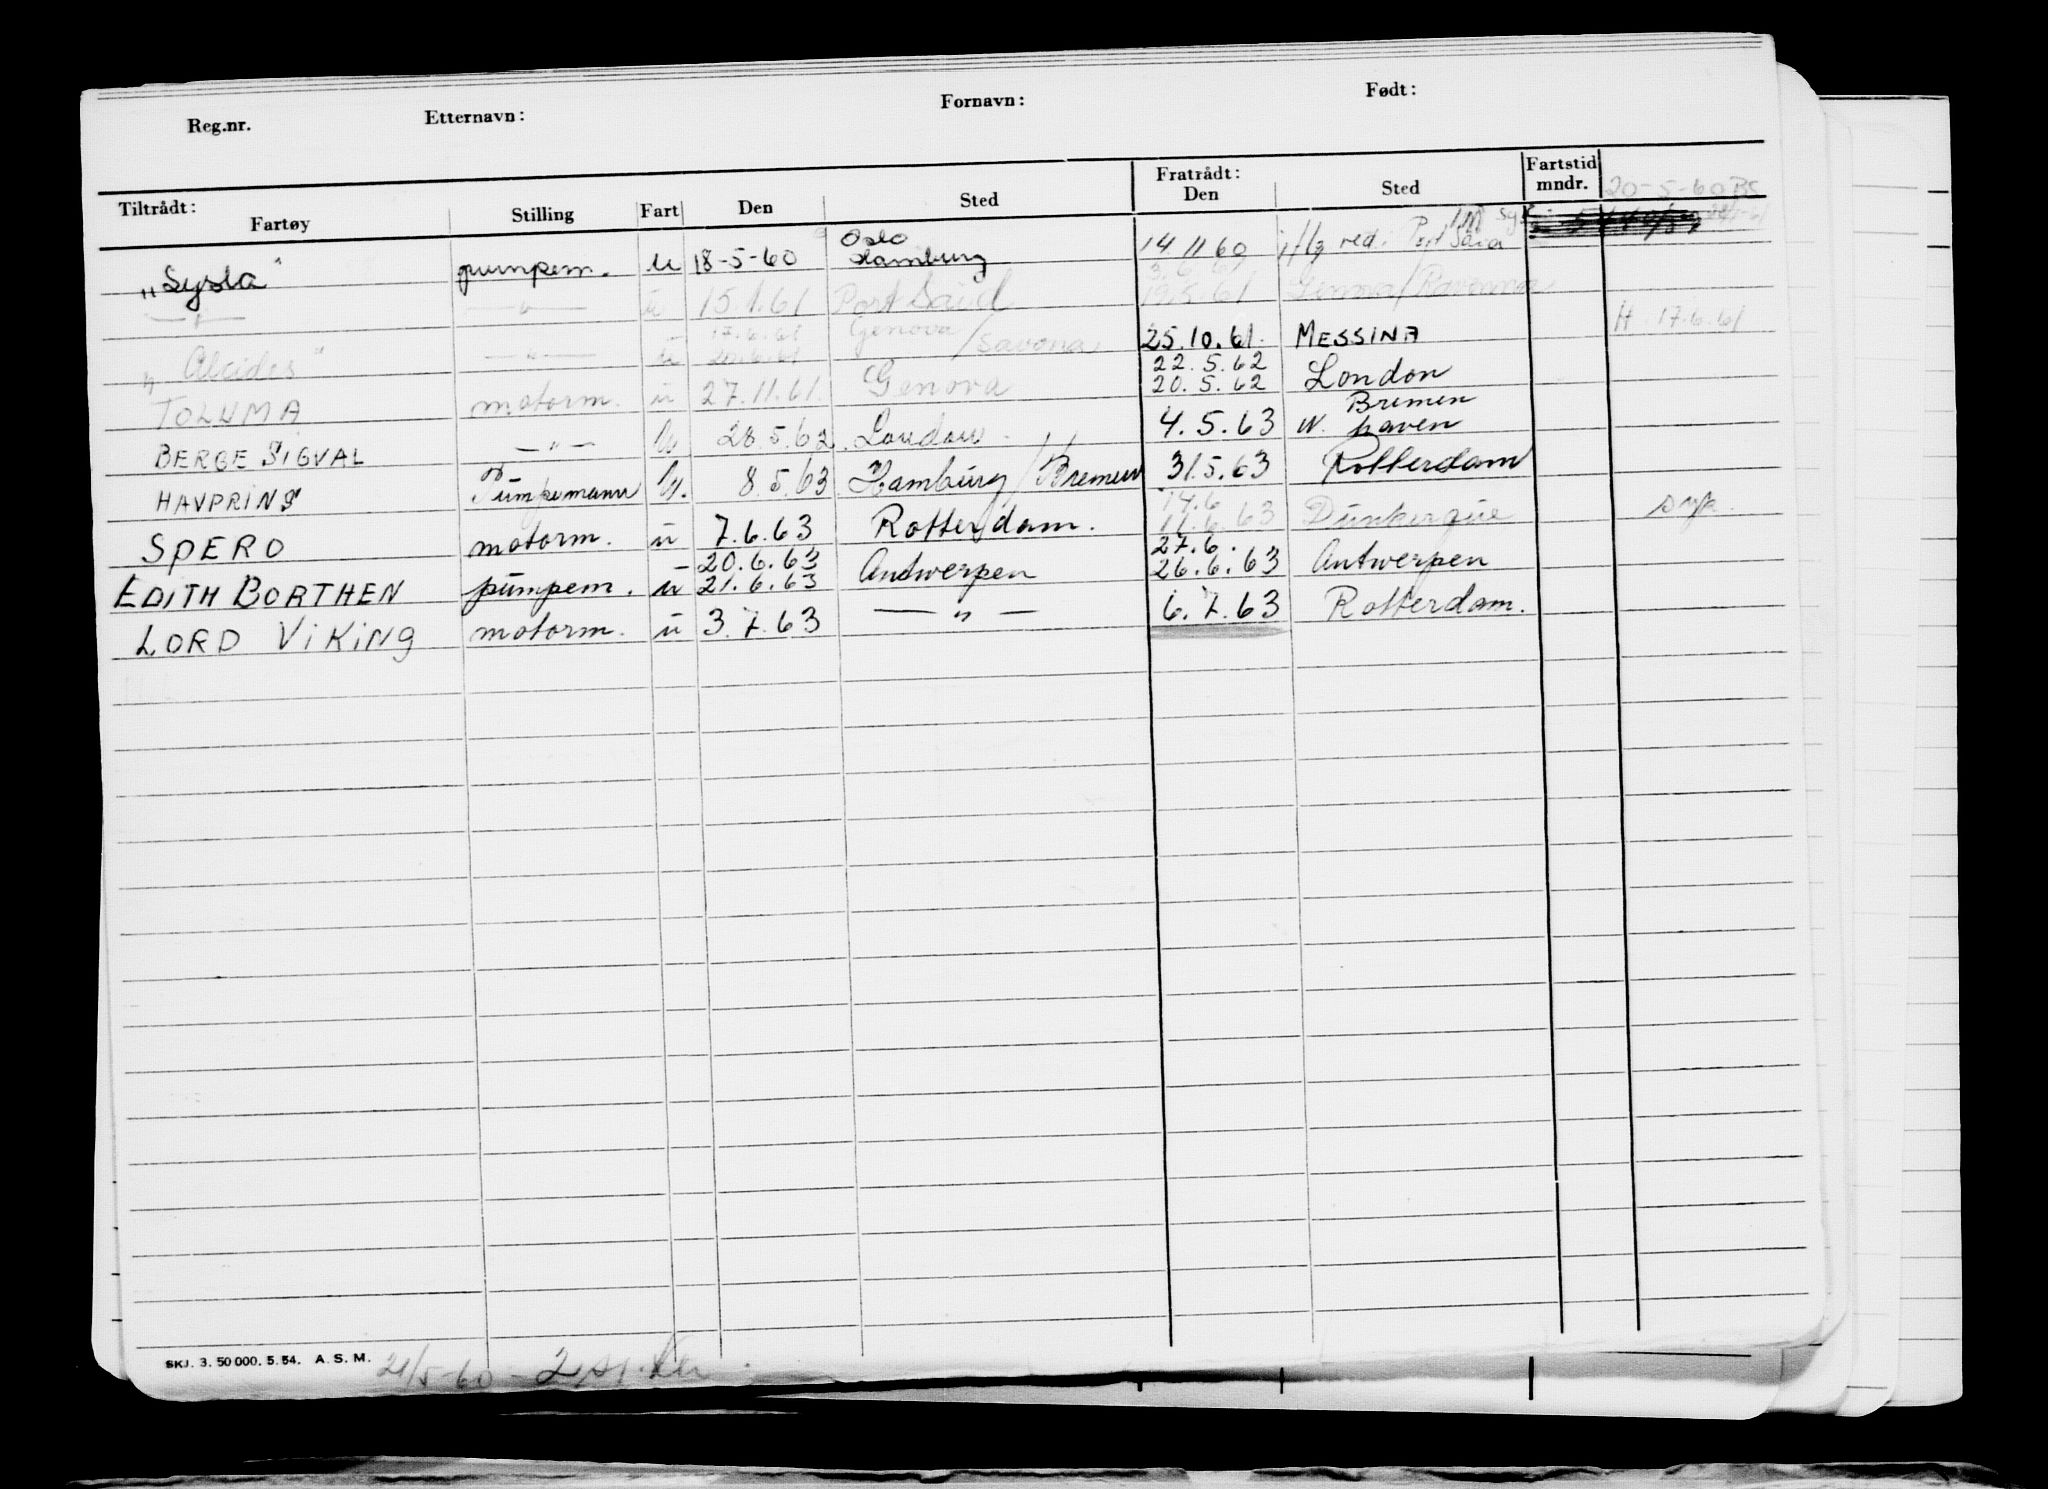 Reg.nr. Etternavn: Fornavn: Født:
Tiltrådt: Fratrådt: Fartstid
Fartøy Stilling Fart Den Sted Den Sted mndr. 20-5-60 BS
"Sysla" pumpem. u 18-5-60 Oslo Hamburg 14 11 60 Port Said
— " — — " — u 15.1.61 Port Said 3.6.61 19.5.61 Genova/Ravenna
"Alcides" — " — u 17.6.61 20.6.61 Genova/Savona 25.10.61. MESSINA H 17.6.61
TOLUMA motorm. u 27.11.61. Genova 22.5.62 20.5.62 London
BERGE SIGVAL — " — u 28.5.62. London 4.5.63 Bremen haven
HAVPRINS Pumpemann u. 8.5.63 Hamburg/Bremen 31.5.63 Rotterdam
SPERO motorm. u 7.6.63 Rotterdam. 14.6 11.6.63 Dunkerque syk
EDITH BORTHEN pumpem. u 20.6.63 21.6.63 Antwerpen 27.6. 26.6.63 Antwerpen
LORD VIKING motorm. u 3.7.63 — " — 6.7.63 Rotterdam.
SKJ. 3. 50 000. 5. 54. A. S. M. 21/5-60